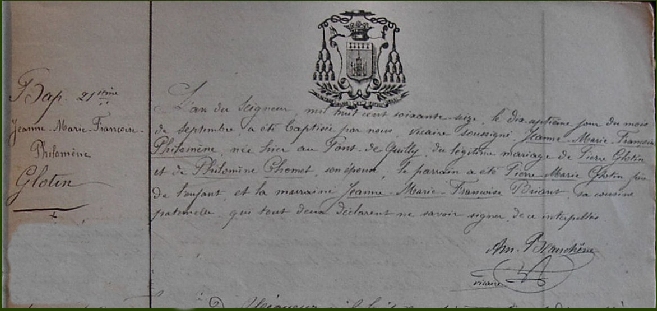 Bap. 21ème
Jeanne-Marie-Françoise-
Philomène
Glotin
L'an du Seigneur, mil huit cent soixante seize, le dix septième jour du mois
de Septembre a été baptisée par nous, vicaire soussigné Jeanne Marie Françoise
Philomène, née hier au de Guilly, du légitime mariage de Pierre Glotin
et de Philomène Chomet, son épouse, Le parrain a été Pierre Marie Glotin
de l'enfant et la marraine Jeanne-Marie-Françoise sa cousine
paternelle, qui tout deux déclarent ne savoir signer de ce interpellés
vicaire
Seigneur